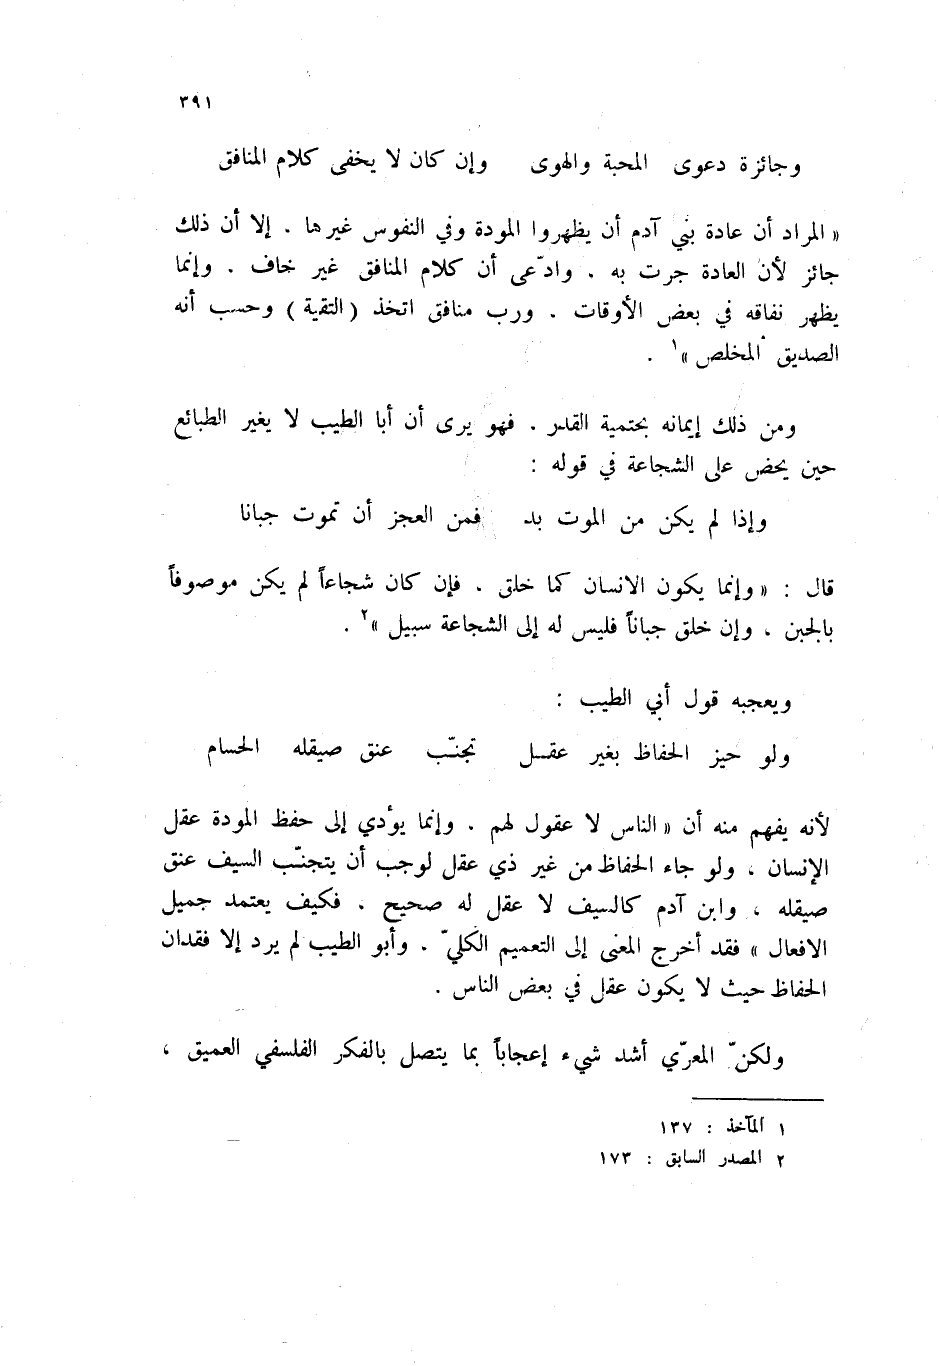 ٣٩١
وجائزة دعوى المحبة والهوى وإن كان لا يخفى كلام المنافق
« المراد أن عادة بني آدم أن يظهروا المودة وفي النفوس غيرها . إلا أن ذلك
جائز لأن العادة جرت به . وادّعى أن كلام المنافق غير خاف . وإنما
يظهر نفاقه في بعض الأوقات . ورب منافق اتخذ ( التقية ) وحسب أنه
الصديق المخلص »١ .
ومن ذلك إيمانه بحتمية القدر . فهو يرى أن أبا الطيب لا يغير الطبائع
حين يحض على الشجاعة في قوله :
وإذا لم يكن من الموت بد فمن العجز أن تموت جبانا
قال : « وإنما يكون الانسان كما خلق . فإن كان شجاعاً لم يكن موصوفاً
بالجبن ، وإن خلق جباناً فليس له إلى الشجاعة سبيل »٢ .
ويعجبه قول أبي الطيب :
ولو حيز الحفاظ بغير عقل تجنّب عنق صيقله الحسام
لأنه يفهم منه أن « الناس لا عقول لهم . وإنما يؤدي إلى حفظ المودة عقل
الإنسان ، ولو جاء الحفاظ من غير ذي عقل لوجب أن يتجنّب السيف عنق
صيقله ، وابن آدم كالسيف لا عقل له صحيح . فكيف يعتمد جميل
الافعال » فقد أخرج المعنى إلى التعميم الكليّ . وأبو الطيب لم يرد إلا فقدان
الحفاظ حيث لا يكون عقل في بعض الناس .
ولكنّ المعرّي أشد شيء إعجاباً بما يتصل بالفكر الفلسفي العميق ،
١ المآخذ : ١٣٧
٢ المصدر السابق : ١٧٣